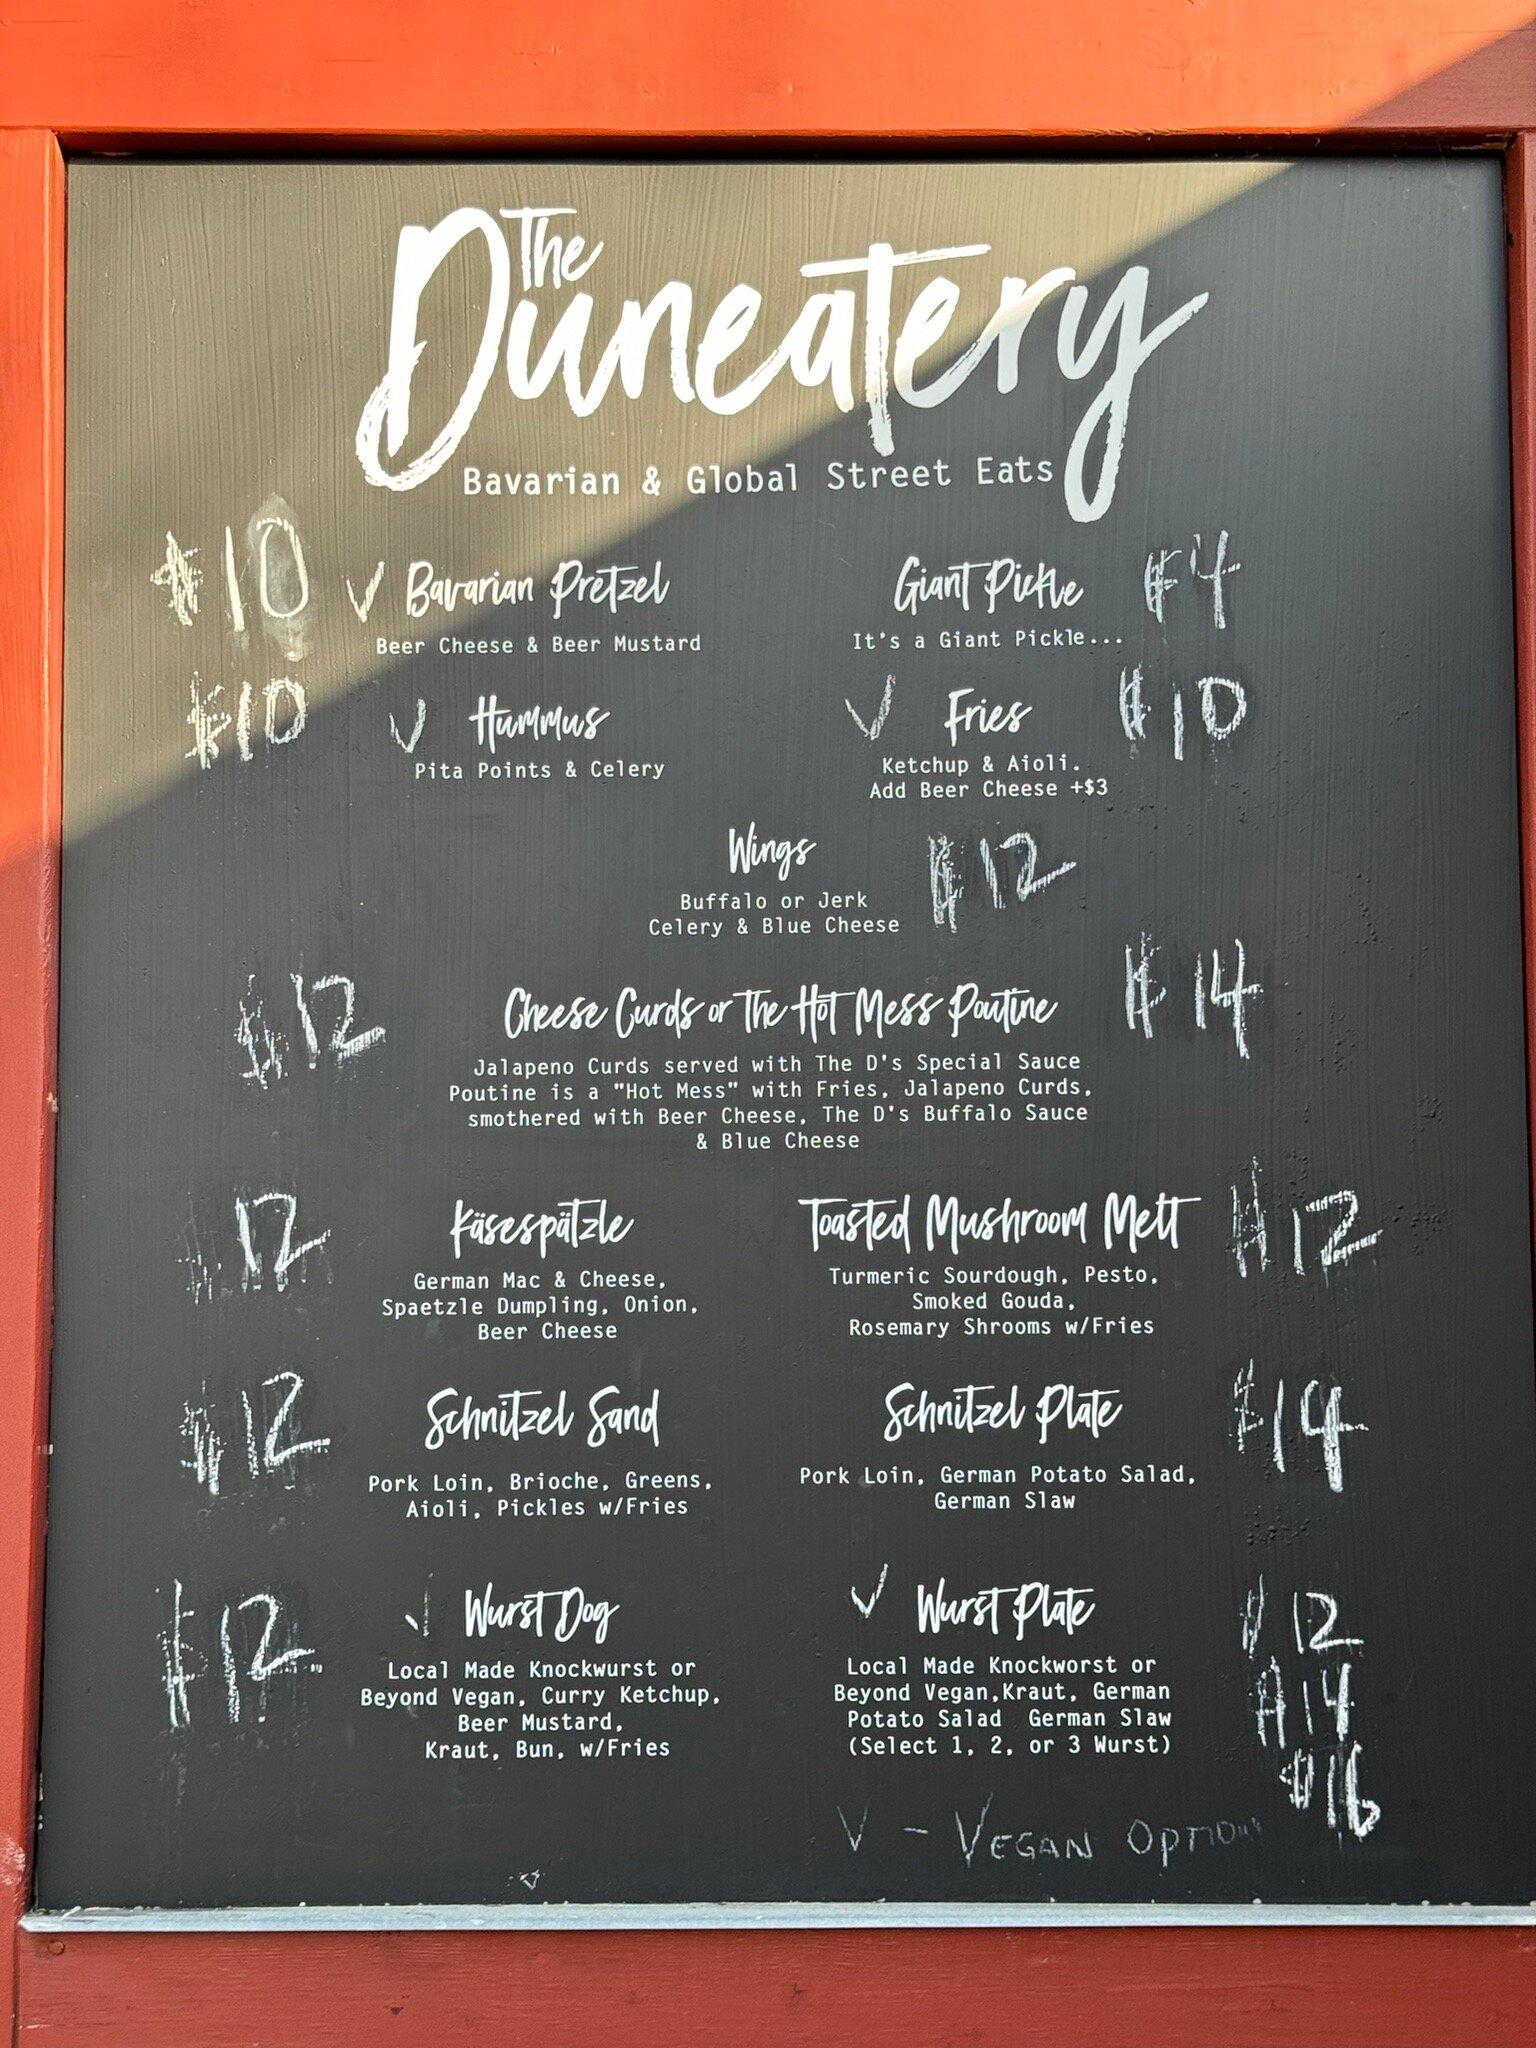 The
Duneatery
Bavarian & Global Street Eats
$10 V Bavarian Pretzel
Beer Cheese & Beer Mustard
Giant Pickle $4
It's a Giant Pickle...
$10 V Hummus
Pita Points & Celery
V Fries $10
Ketchup & Aioli.
Add Beer Cheese +$3
Wings $12
Buffalo or Jerk
Celery & Blue Cheese
$12 Cheese Curds or The Hot Mess Poutine $14
Jalapeno Curds served with The D's Special Sauce
Poutine is a "Hot Mess" with Fries, Jalapeno Curds,
smothered with Beer Cheese, The D's Buffalo Sauce
& Blue Cheese
$12 Käsespätzle
German Mac & Cheese,
Spaetzle Dumpling, Onion,
Beer Cheese
Toasted Mushroom Melt $12
Turmeric Sourdough, Pesto,
Smoked Gouda,
Rosemary Shrooms w/Fries
$12 Schnitzel Sand
Pork Loin, Brioche, Greens,
Aioli, Pickles w/Fries
Schnitzel Plate $14
Pork Loin, German Potato Salad,
German Slaw
$12 V Wurst Dog
Local Made Knockwurst or
Beyond Vegan, Curry Ketchup,
Beer Mustard,
Kraut, Bun, w/Fries
V Wurst Plate $12
Local Made Knockworst or
Beyond Vegan,Kraut, German
Potato Salad German Slaw
(Select 1, 2, or 3 Wurst)
$14
$16
V - VEGAN OPTION